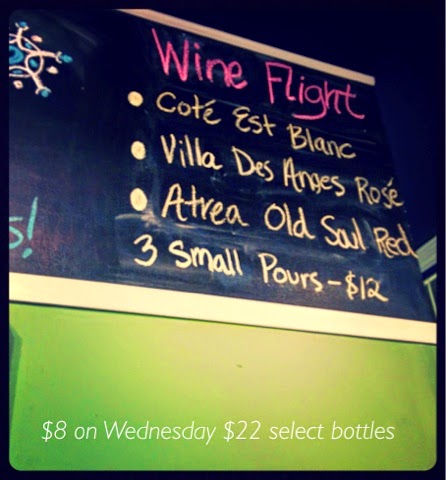 Wine Flight
• Coté Est Blanc
• Villa Des Anges Rosé
• Atrea Old Soul Red
3 Small Pours - $12
s!
$8 on Wednesday $22 select bottles